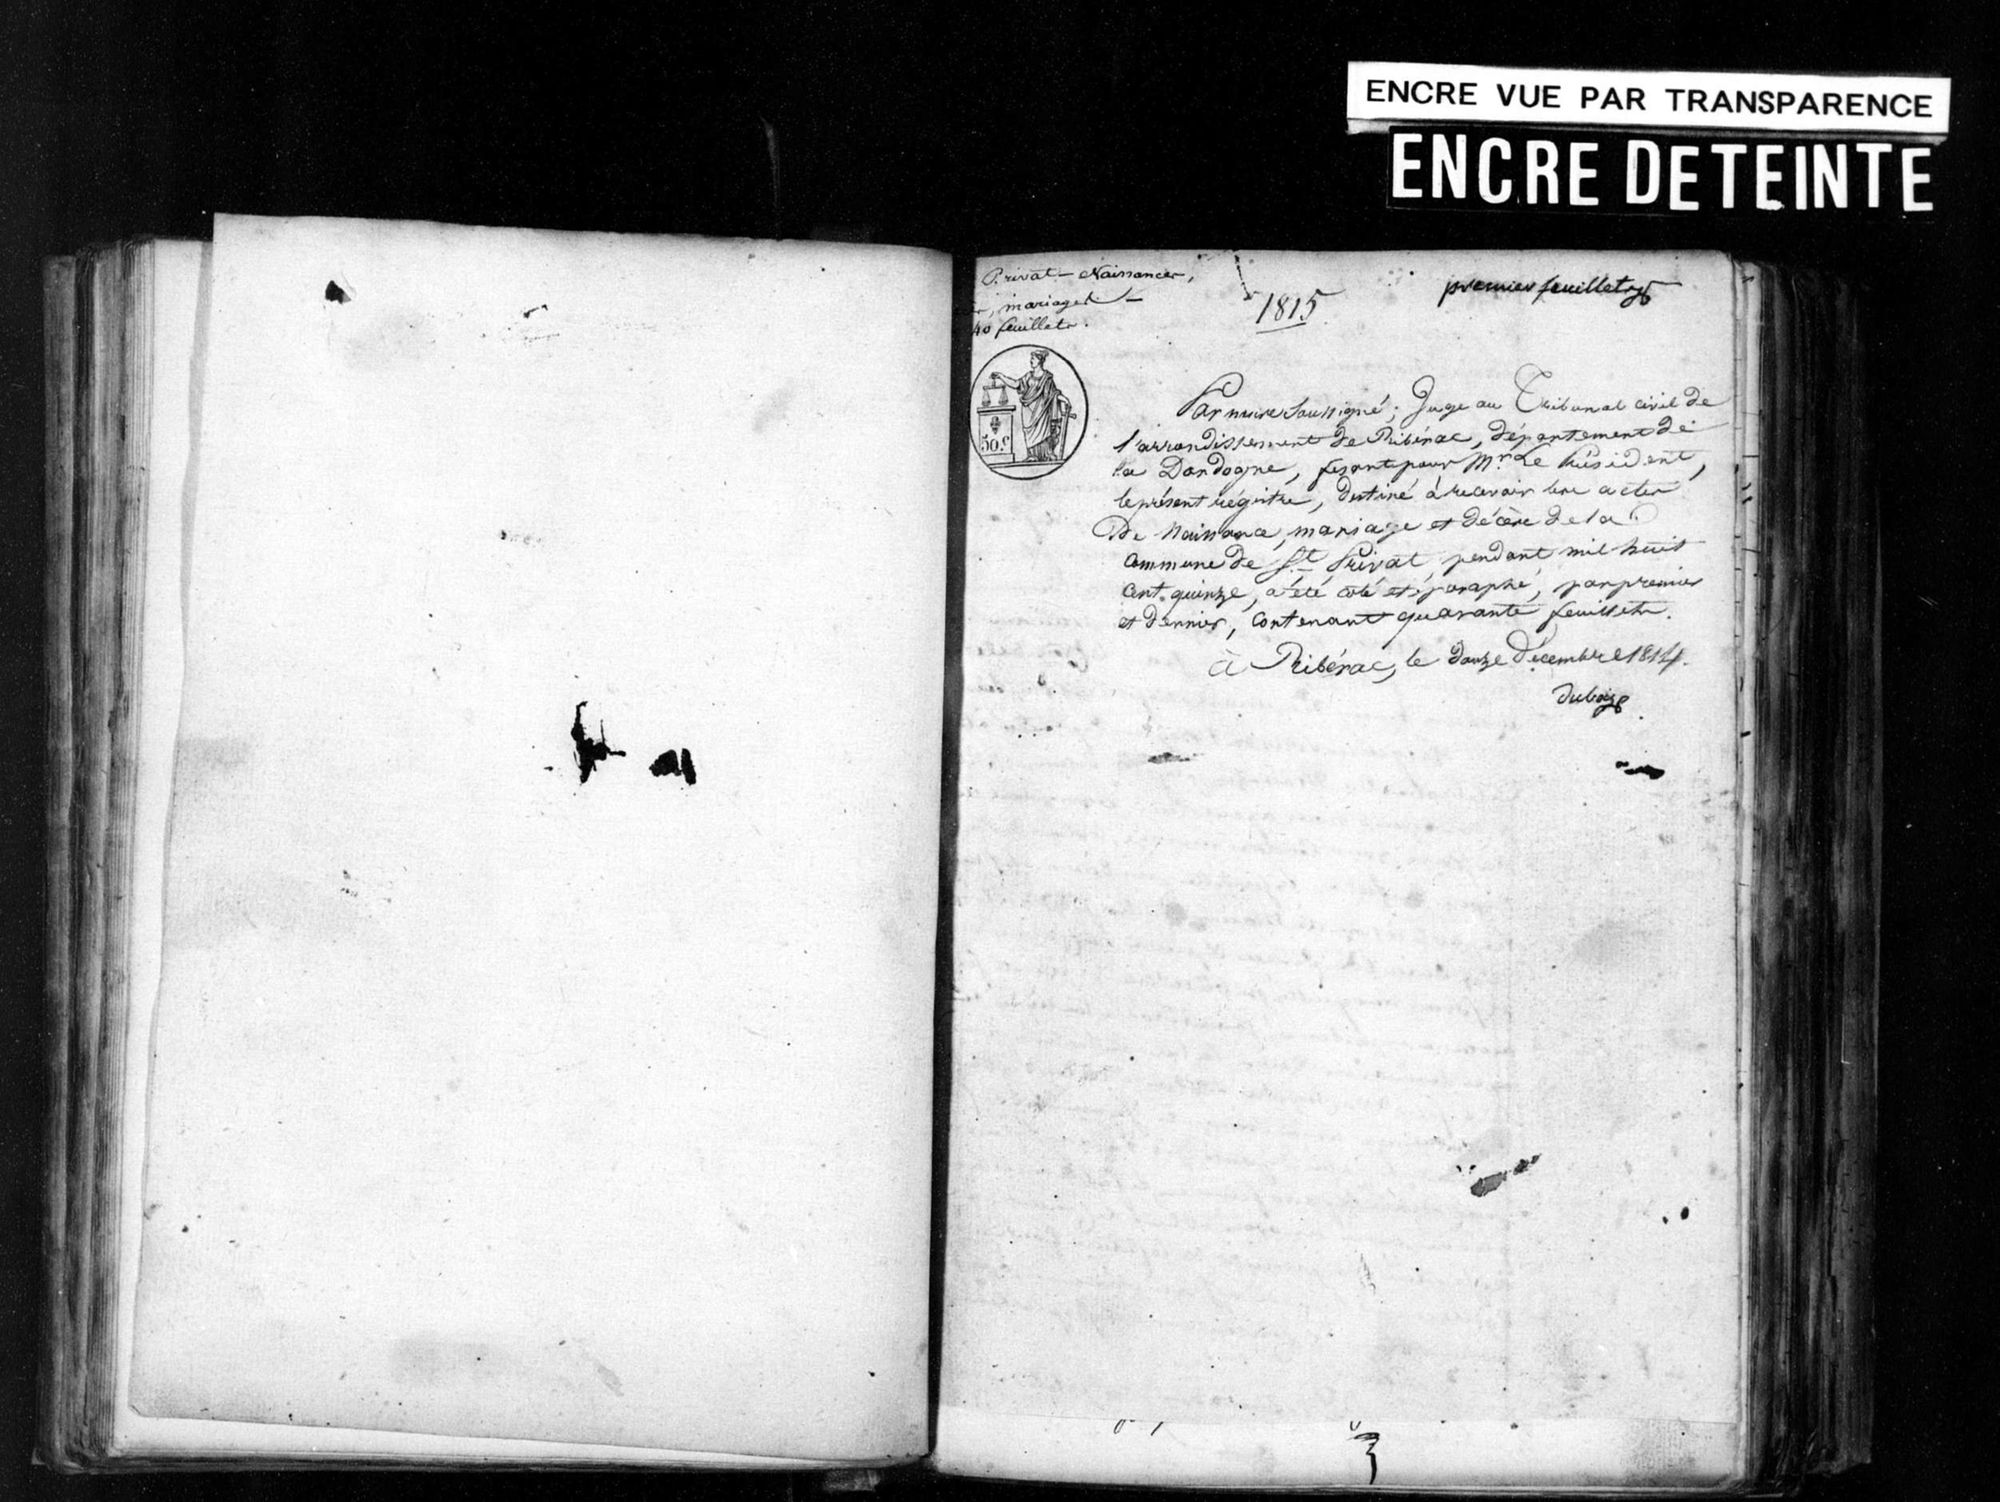 ENCRE VUE PAR TRANSPARENCE
ENCRE DETEINTE
Privat — Naissances,
, mariages —
40 feuillets.
1815
premier feuillet
50.c
Par nous soussigné, Juge au Tribunal civil de
l'arrondissement de Ribérac, département de
la Dordogne, fesant pour Mr. Le Président,
le présent régistre, destiné à recevoir les actes
De Naissance, mariage et décès de la
commune de St. Privat, pendant mil huit
cent quinze, a été coté et paraphé, par premier
et dernier, contenant quarante feuillets.
à Ribérac, le douze Décembre 1814.
dubois